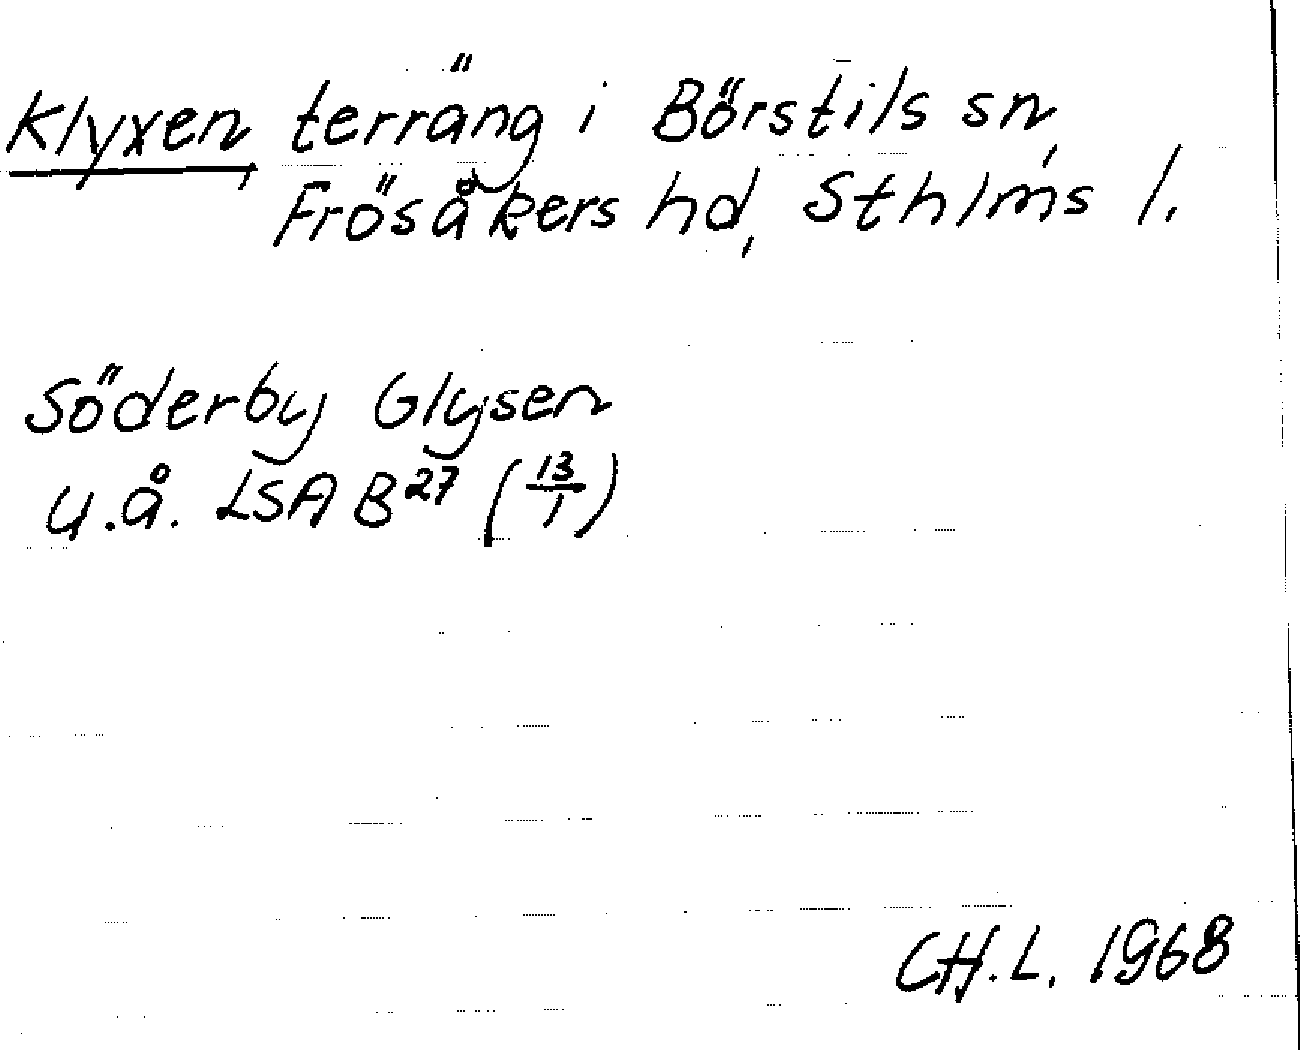 Klyxen, terräng i Börstils sn,
Frösåkers hd, Sthlms l.
Söderby Glysen
u.å. LSA B27 (13/1)
CH.L. 1968